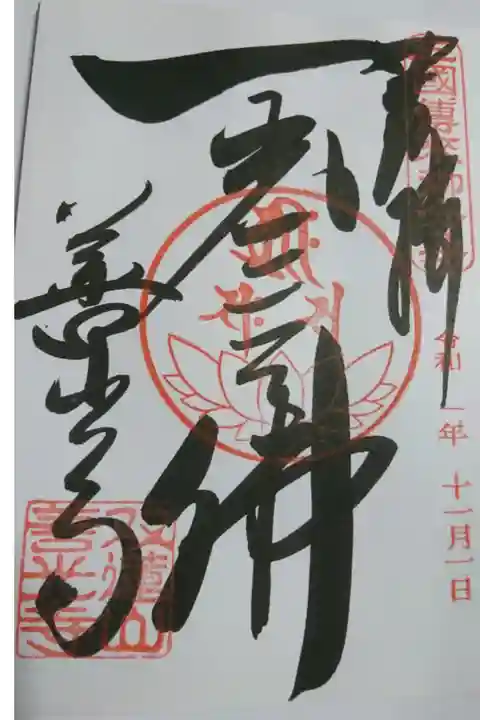 奉拝
令和 一年 十一月一日
一光三尊佛
善光寺
善光寺